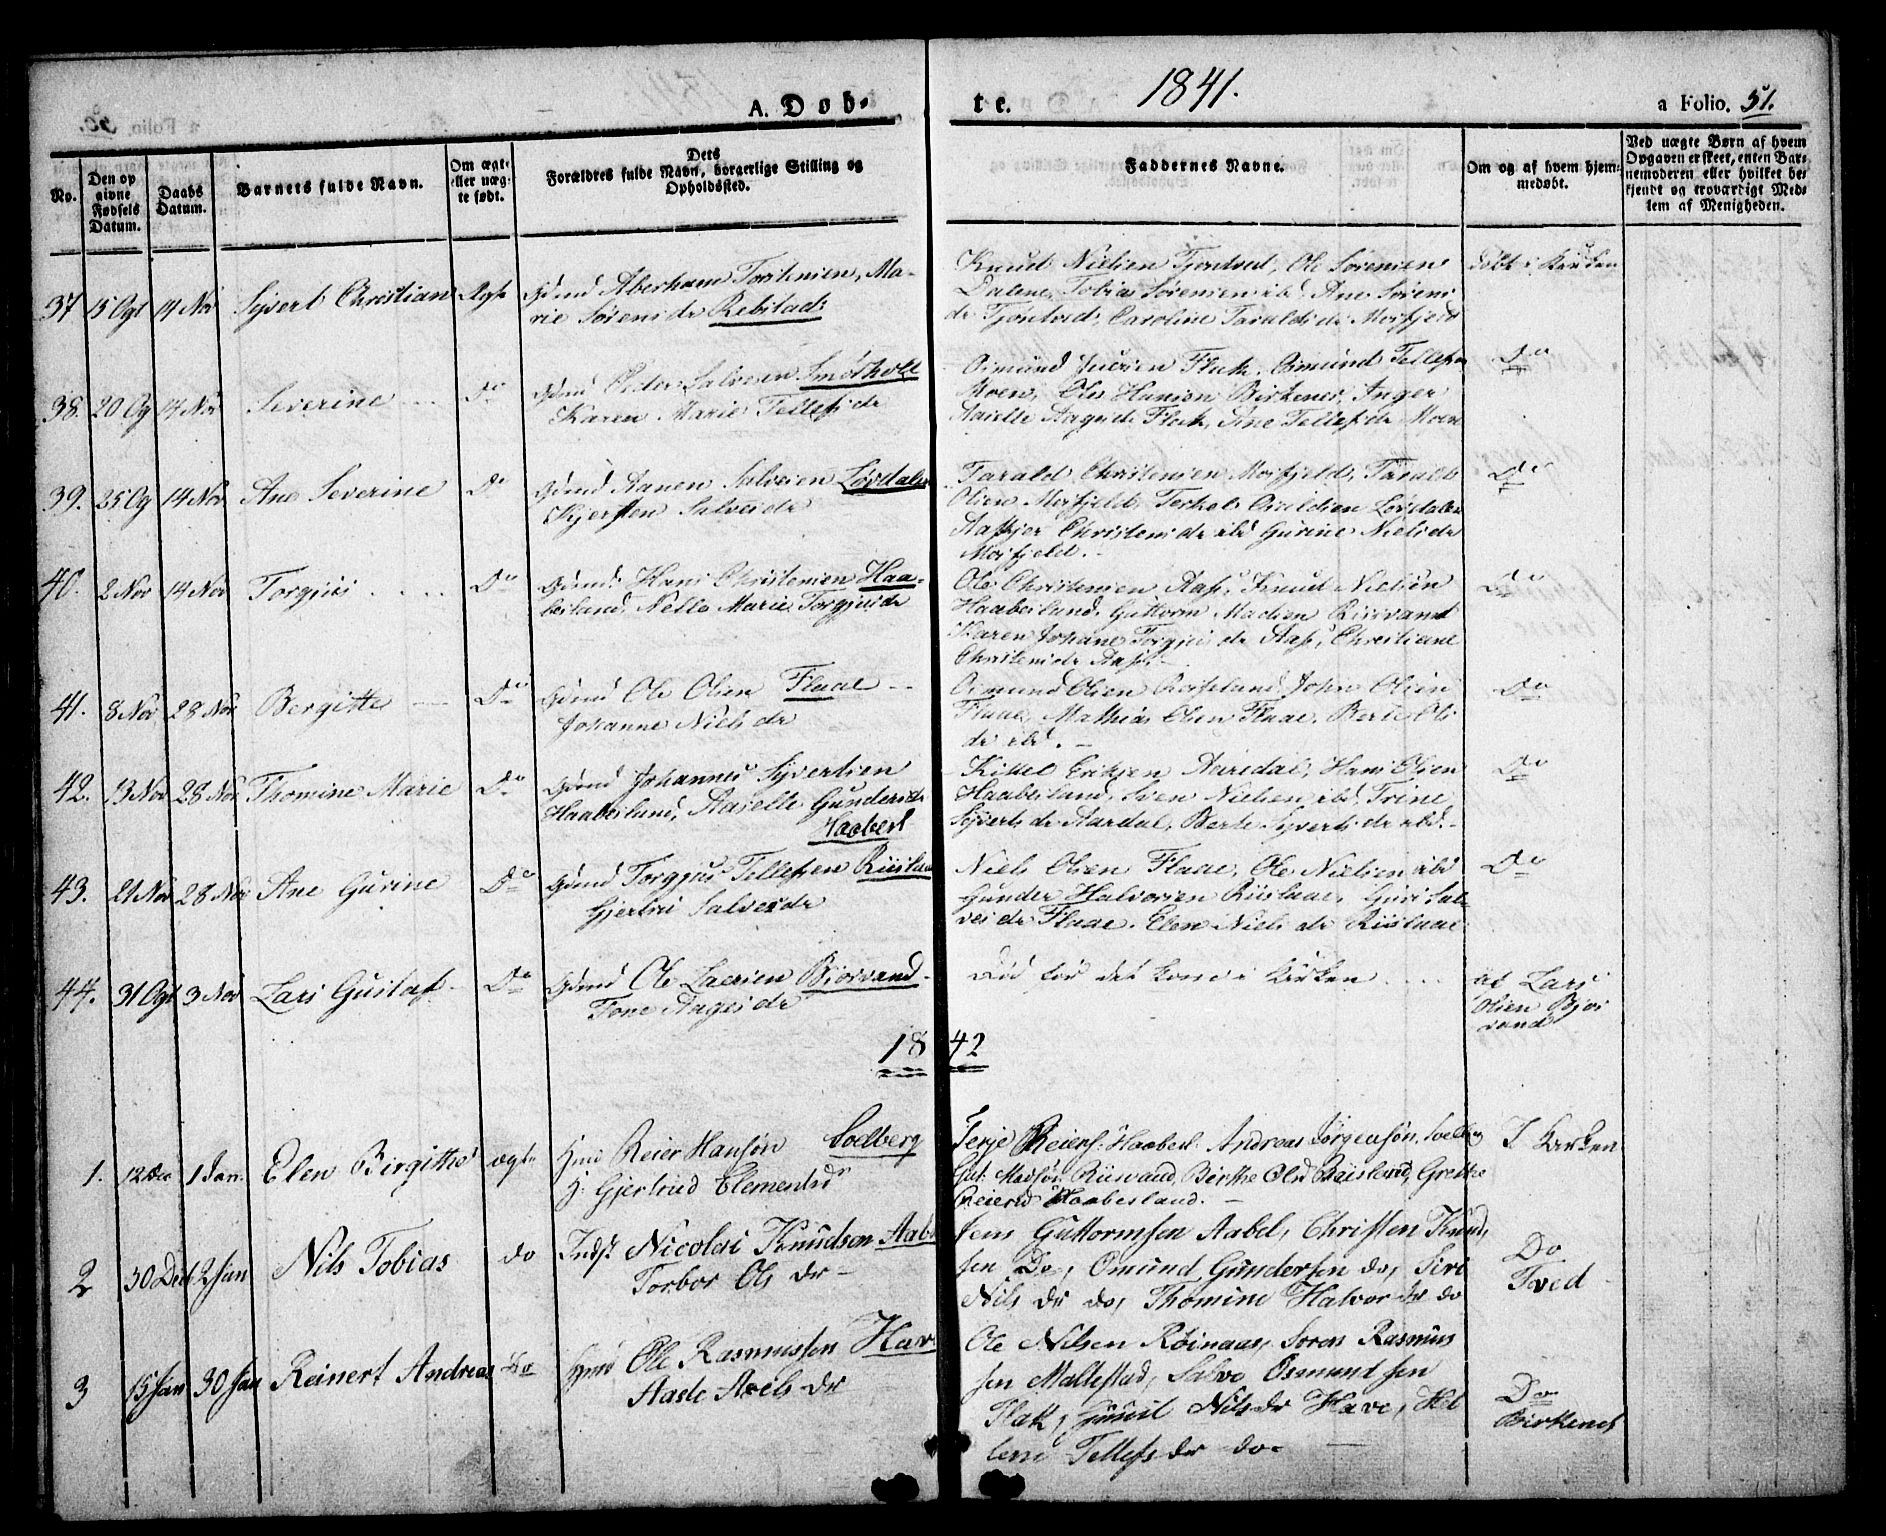 A. Døb-
te.
1841.
a Folio. 51.
No.
Den op
givne
Fødsels
Datum.
Daabs
Datum.
Barnets fulde Navn.
Om ægte
eller uæg-
te født.
Dets
Forældres fulde Navn, borgerlige Stilling og
Opholdssted.
Faddernes Navne.
Om og af hvem hjem-
medøbt.
Ved uægte Børn af hvem
Opgaven er skeet, enten Bar-
nemoderen eller hvilket be-
kjendt og troværdigt Med-
lem af Menigheden.
37 15 Ogt 14 Nov Syvert Christian Ægte
Gdmd Aberham Torkensen, Ma-
rie Sørensdr Rebstad
Knud Nielsen Tjøntved, Ole Sørensen
Dalene, Tobias Sørensen ibd. Ane Sørens
dr Tjøntved, Caroline Taraldsdr Mosfjeld
døbt i Kirken
38. 20 Og 14 Nov Severine Do
Gdmd Peder Salvesen Smøthole
Karen Marie Tellefsdr
Osmund Flak, Osmund Tellefsen
Moen, Ole Hansen Birkenes, Inger
Aaselle Aagesdr Flak, Sine Tellefsdr Moen
Do
39. 25 Og 14 Nov Ane Severine Do
Gdmd Aanen Salvesen Løvdalen
Kjersten Salvesdr
Tarald Christensen Mosfjeld, Tarald
Olsen Mosfjeld, Terkel Løvdalen
Christensdr ibd Gurine Nielsdr
Mosfjeld.
Do
40. 2 Nov 14 Nov Torgjus Do
Gdmd. Hans Christensen Haa-
besland, Nelle Marie Torgjusdr
Ole Christensen Aass, Knud Nielsen
Haabesland, Guttorm Madsen Riisvand
Karen Johane Torgjusdr Aass, Christiane
Christensdr Aass.
Do
41. 8 Nov 28 Nov Bergitte Do
Gdmd Ole Olsen Flaae
Johanne Nielsdr
Osmund Olsen John Olsen
Flaae, Mathias Olsen Flaae, Berte Ols
dr ibd.
Do
42. 13 Nov 28 Nov Thomine Marie Do
Gdmd Johannes Syvertsen
Haabesland, Aaselle Gundersdr
Haabesl
Kittel Eriksen Aaredal, Hans Olsen
Haabesland, Sven Nielsen ibd. Trine
Syvertsdr Aardal, Berte Syvertsdr ibd.
Do
43. 21 Nov 28 Nov Ane Gurine Do
Gdmd Torgjus Tellefsen Riislaae
Gjertrui Salvesdr
Niels Olsen Flaae, Ole Nielsen ibd
Gunder Halvorsen Riislaae, Guri Sal-
vesdr Flaae. Elen Nielsdr Riislaae
Do
44. 31 Ogt 3 Nov Lars Gustaf Do
Gdmd Ole Larsen Bjorvand
Tone Aagesdr
Død før det kom i Kirken
af Lars
Olsen Bjor
vand
1842
1. 12 Dec 1 Jan. Elen Birgitthe ægte
Hmd Reier Hansøn Soelberg
H: Gjertrud Clementsd
Terje Reiers: Haabesl. Andreas Jørgensøn, Soelberg
Gut. Madsøn Riisvand, Birthe Olsd Grethe
Reiersd Haabesland.
I Kirken
2 30 Dec 2 Jan Nils Tobias do
Indst Nicolai Knudsen Aabel
Torbor Ols dr
Jens Guttormsen Aabel, Christen Knud
sen Do, Omund Gundersen do, Siri
Nils dr do, Thomine Halvor dr do
Do
Tved
3 15 Jan 30 Jan Reinert Andreas Do
Gdmd Ole Rasmussen Have
Aaste Axels dr
Ole Nilsen Røinaas, Soren Rasmus
sen Maltestad, Salve Osmundsen
Flak, Nilsdr Have, Hel
lene Tellefs dr do
Do
Birkenes